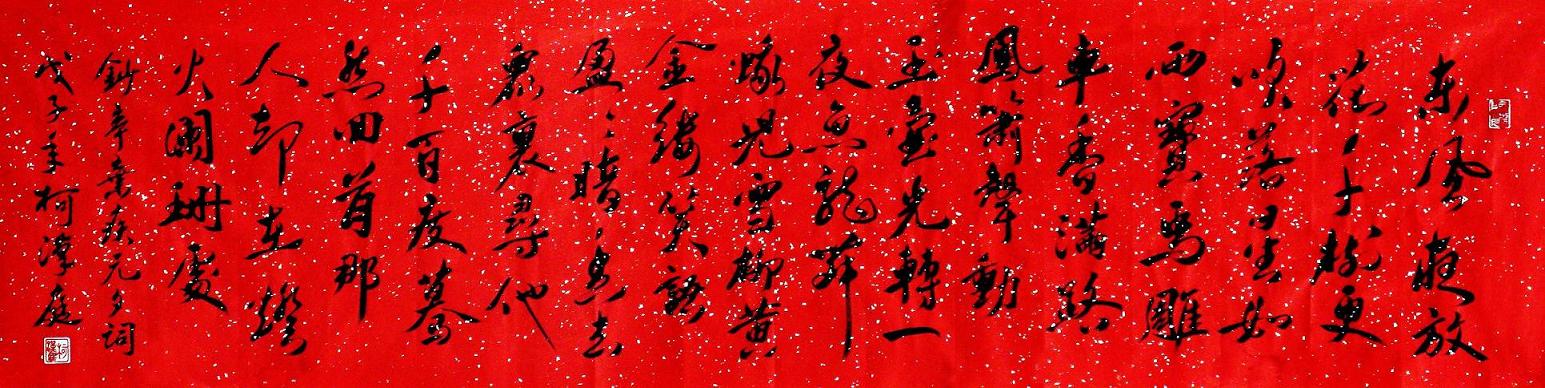 東風夜放
花千樹更
吹落星如
雨寶馬雕
車香滿路
鳳簫聲動
玉壺光轉一
夜魚龍舞
蛾兒雪柳黄
金縷笑語
盈盈暗香去
衆裏尋他
千百度驀
然回首那
人却在燈
火闌珊處
鈔辛棄疾元夕詞
戊子年柯庭